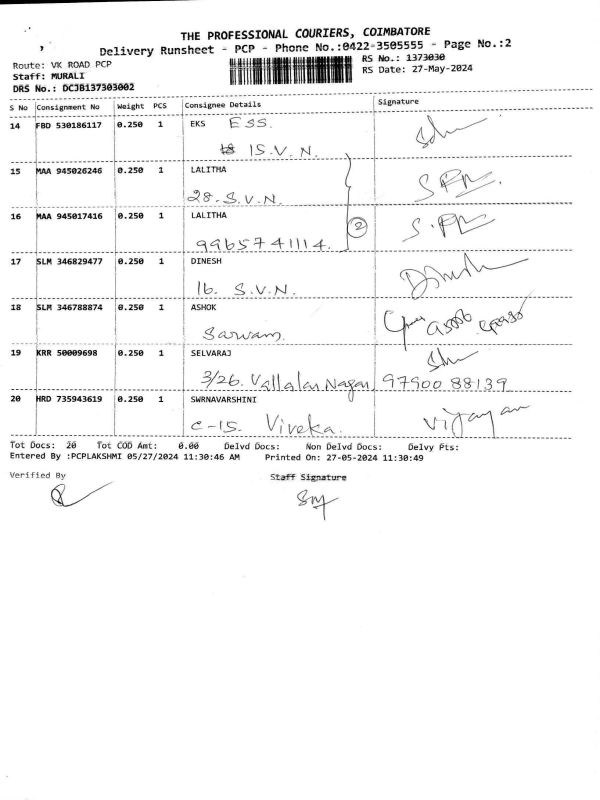 THE PROFESSIONAL COURIERS, COIMBATORE
Delivery Runsheet - PCP - Phone No.:0422-3505555 - Page No.:2
Route: VK ROAD PCP
RS No.: 1373030
Staff: MURALI
RS Date: 27-May-2024
DRS No.: DCJB137303002
S No Consignment No Weight PCS Consignee Details Signature
14 FBD 530186117 0.250 1 EKS ESS
15.V.N.
15 MAA 945026246 0.250 1 LALITHA
28. S.V.N.
16 MAA 945017416 0.250 1 LALITHA
2
9965741114.
17 SLM 346829477 0.250 1 DINESH Dinesh
16. S.V.N.
18 SLM 346788874 0.250 1 ASHOK
Sarwam.
19 KRR 50009698 0.250 1 SELVARAJ
3/26. Vallalar Nagar, 97900 88139
20 HRD 735943619 0.250 1 SWRNAVARSHINI Vijayan
C-15. Viveka.
Tot Docs: 20 Tot COD Amt: 0.00 Delvd Docs: Non Delvd Docs: Delvy Pts:
Entered By :PCPLAKSHMI 05/27/2024 11:30:46 AM Printed On: 27-05-2024 11:30:49
Verified By Staff Signature